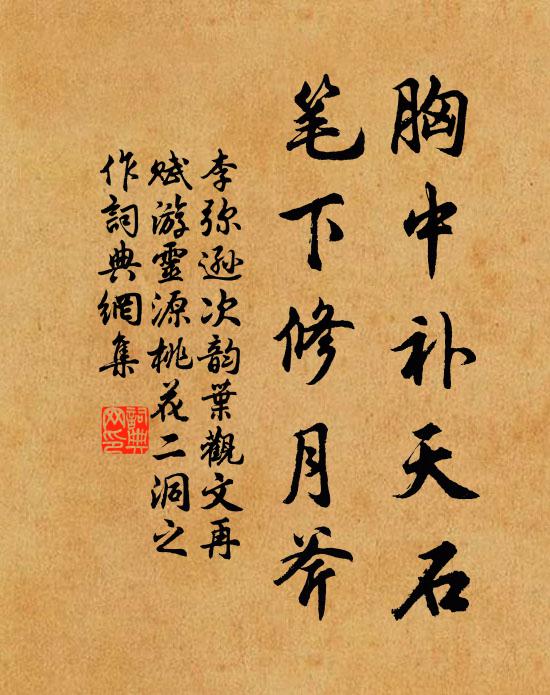 胸中补天石
笔下修月斧
李弥逊次韵葉觀文再
赋游靈源桃花二洞之
作詞典網集
詞典网印